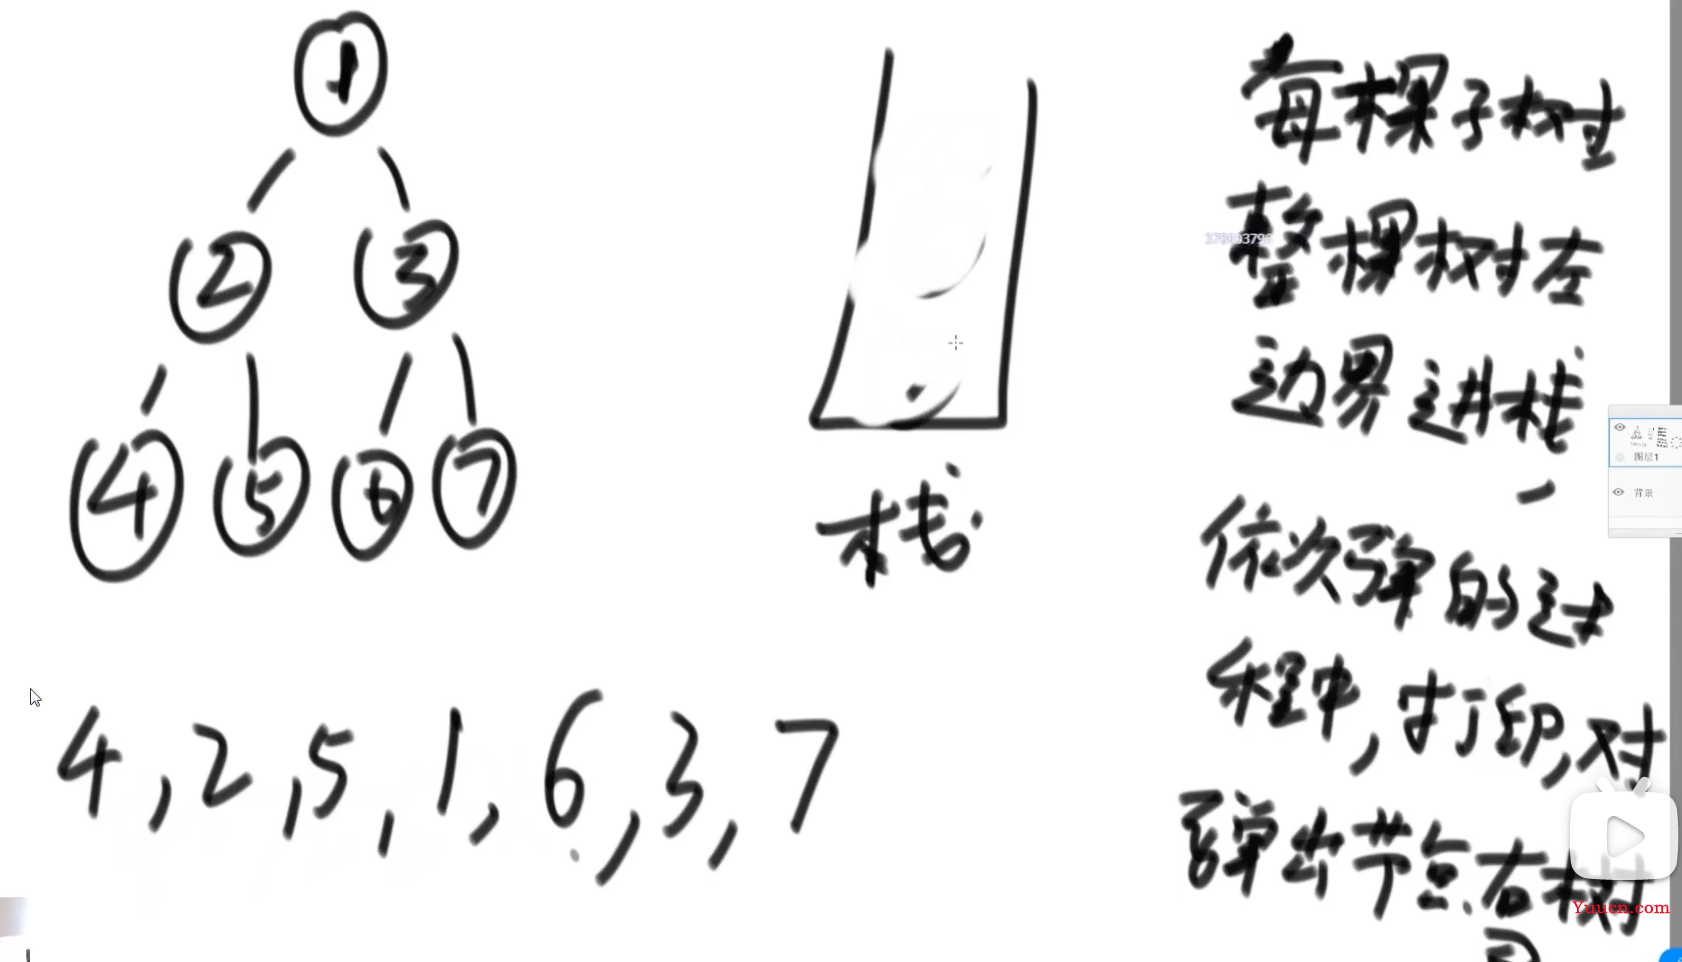 1
2 3
4 5 6 7
栈
4,2,5,1,6,3,7
每棵子树
整棵树左
边界进栈,
依次弹的过
程中,打印,对
弹出节点右树
图层1
背景
Yuucn.com